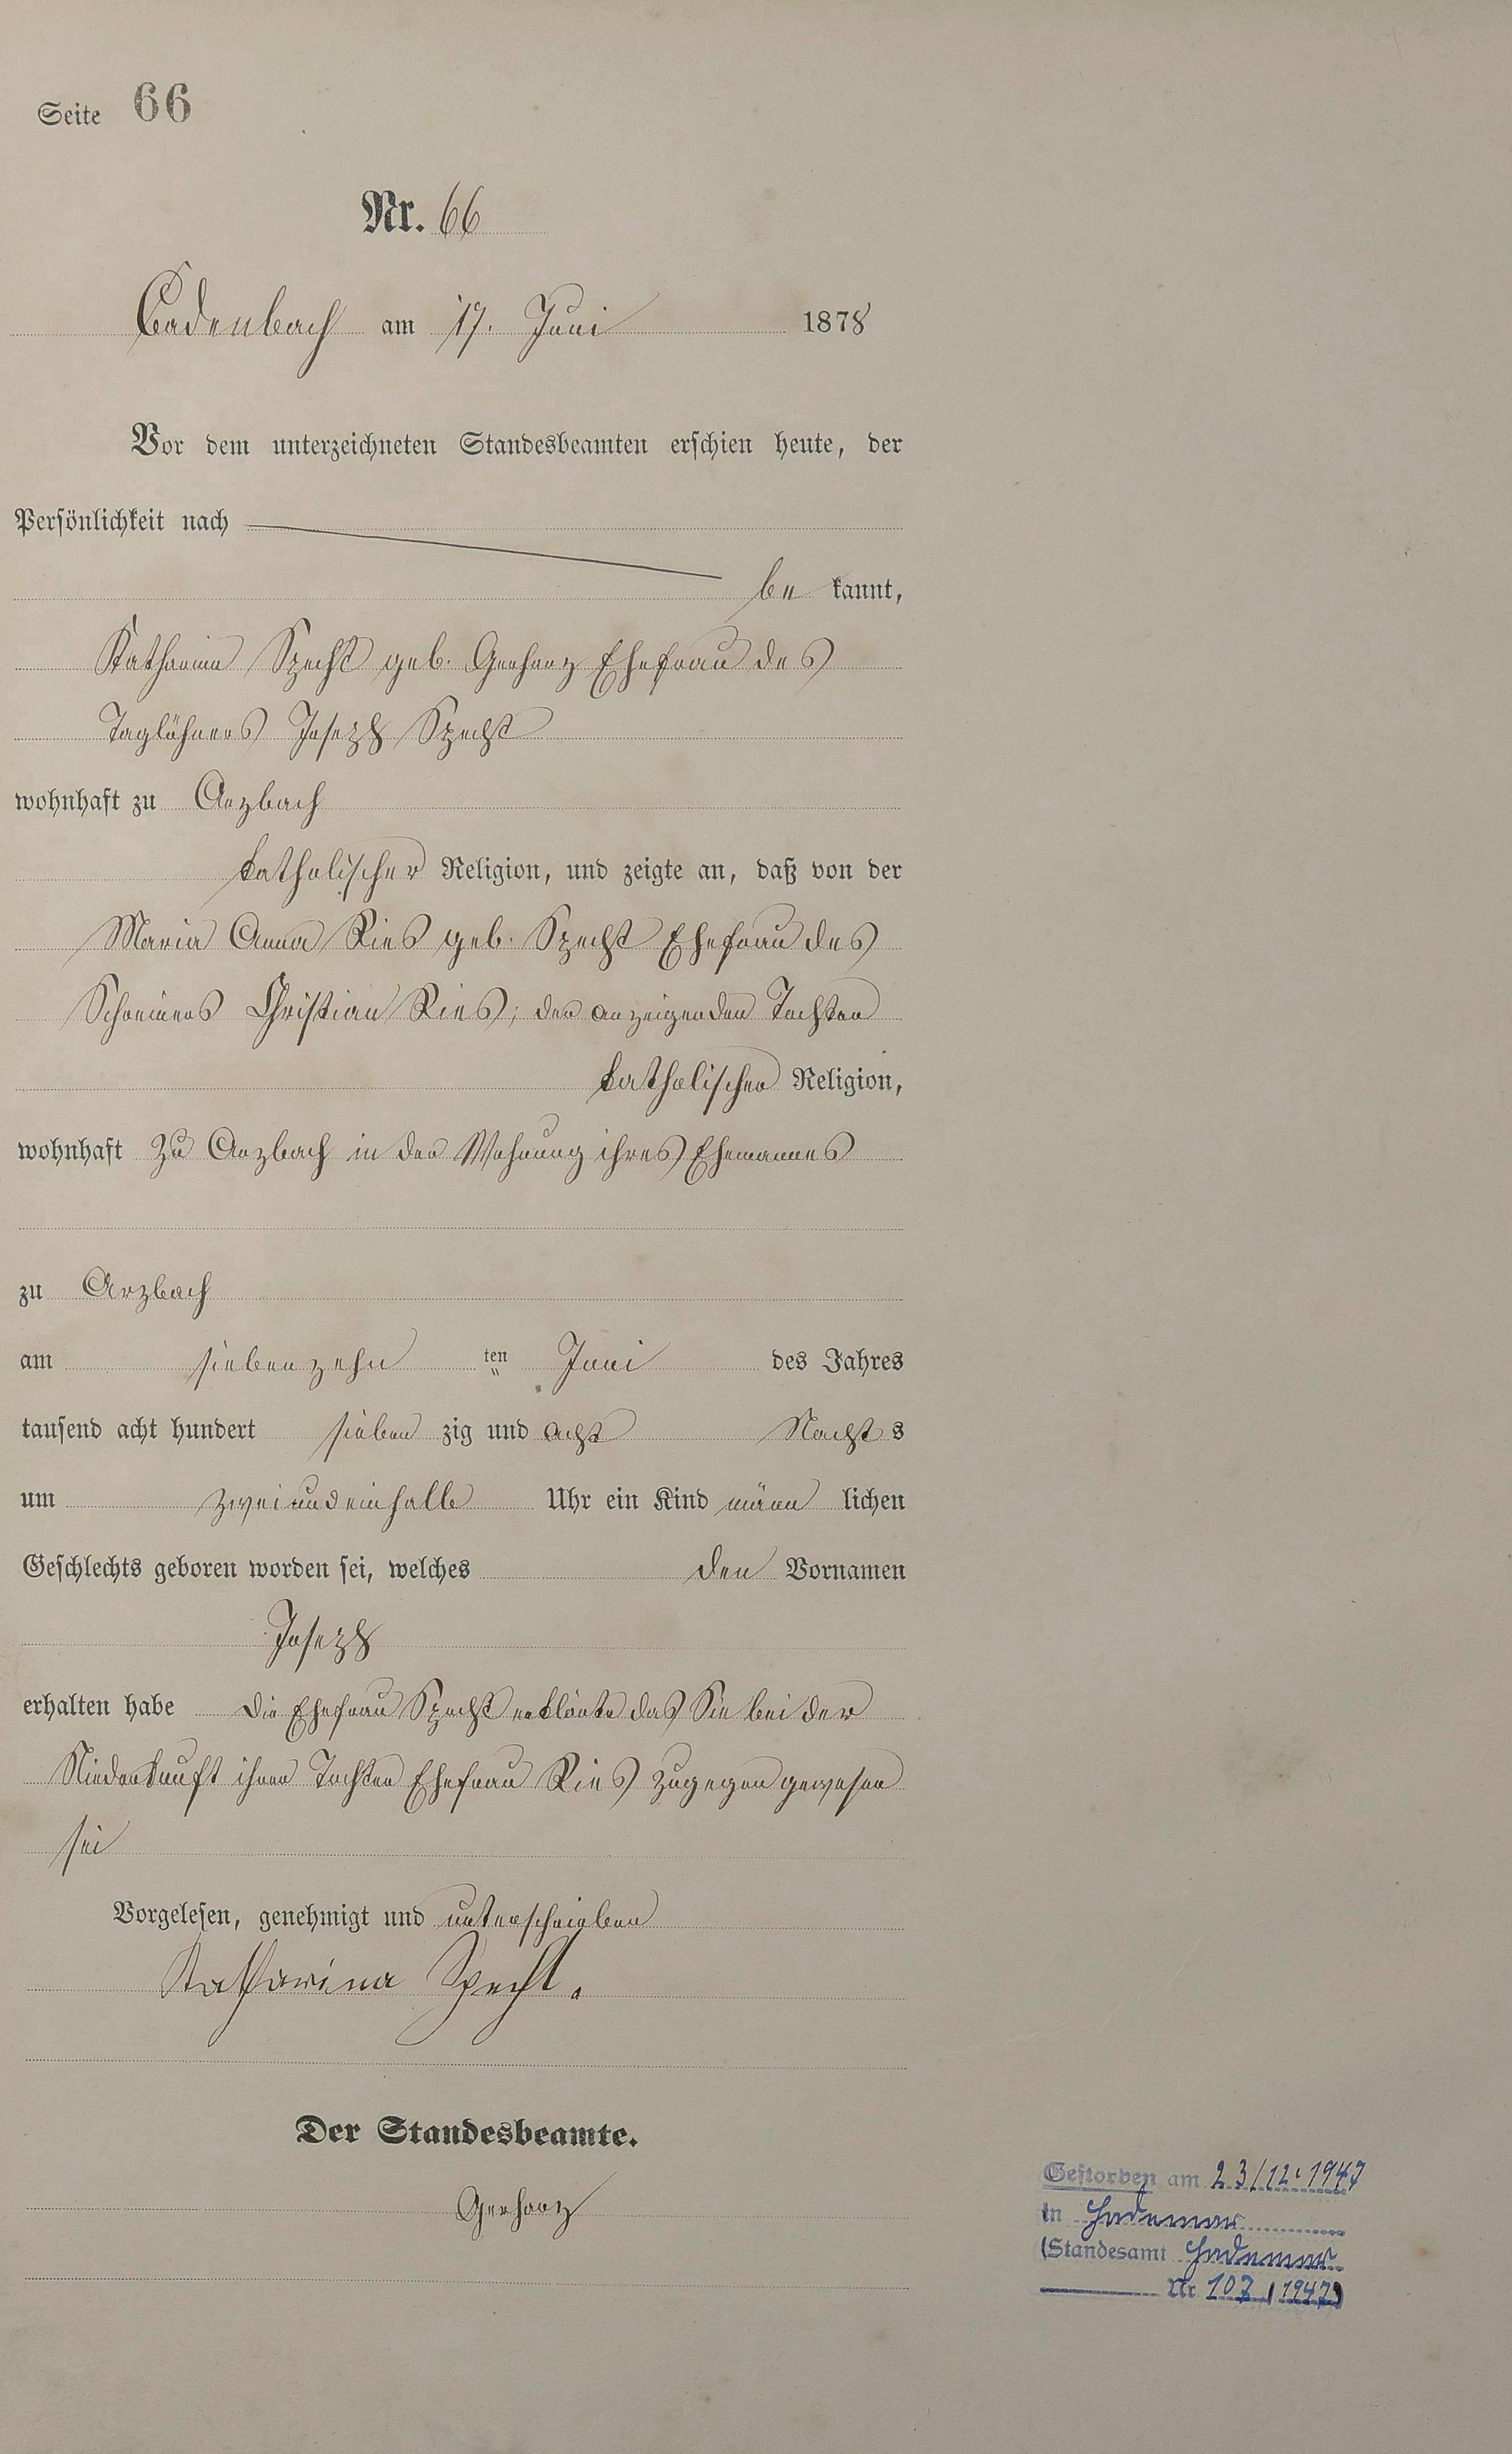 Seite 66
Nr. 66
Cadenbach am 17. Juni 1878
Vor dem unterzeichneten Standesbeamten erschien heute, der
Persönlichkeit nach
be kannt,
Katharina Specht geb. Gerharz Ehefrau des
Taglöhners Joseph Specht
wohnhaft zu Arzbach
katholischer Religion, und zeigte an, daß von der
Maria Anna Ries geb. Specht Ehefrau des
Schreiners Christian Ries, der anzeigenden Tochter
katholischer Religion,
wohnhaft zu Arzbach in der Wohnung ihres Ehemannes
zu Arzbach
am siebenzehn ten Juni des Jahres
tausend acht hundert sieben zig und acht Nacht s
um zweiundeinhalb Uhr ein Kind männ lichen
Geschlechts geboren worden sei, welches den Vornamen
Joseph
erhalten habe Die Ehefrau Specht erklärte das Sie bei der
Niederkunft ihrer Tochter Ehefrau Ries zugegen gewesen
sei
Vorgelesen, genehmigt und unterschrieben
Katharina Specht.
Der Standesbeamte.
Gerharz
Gestorben am 23/12. 1947
in Hadamar
(Standesamt Hadamar
Nr. 107/1947)